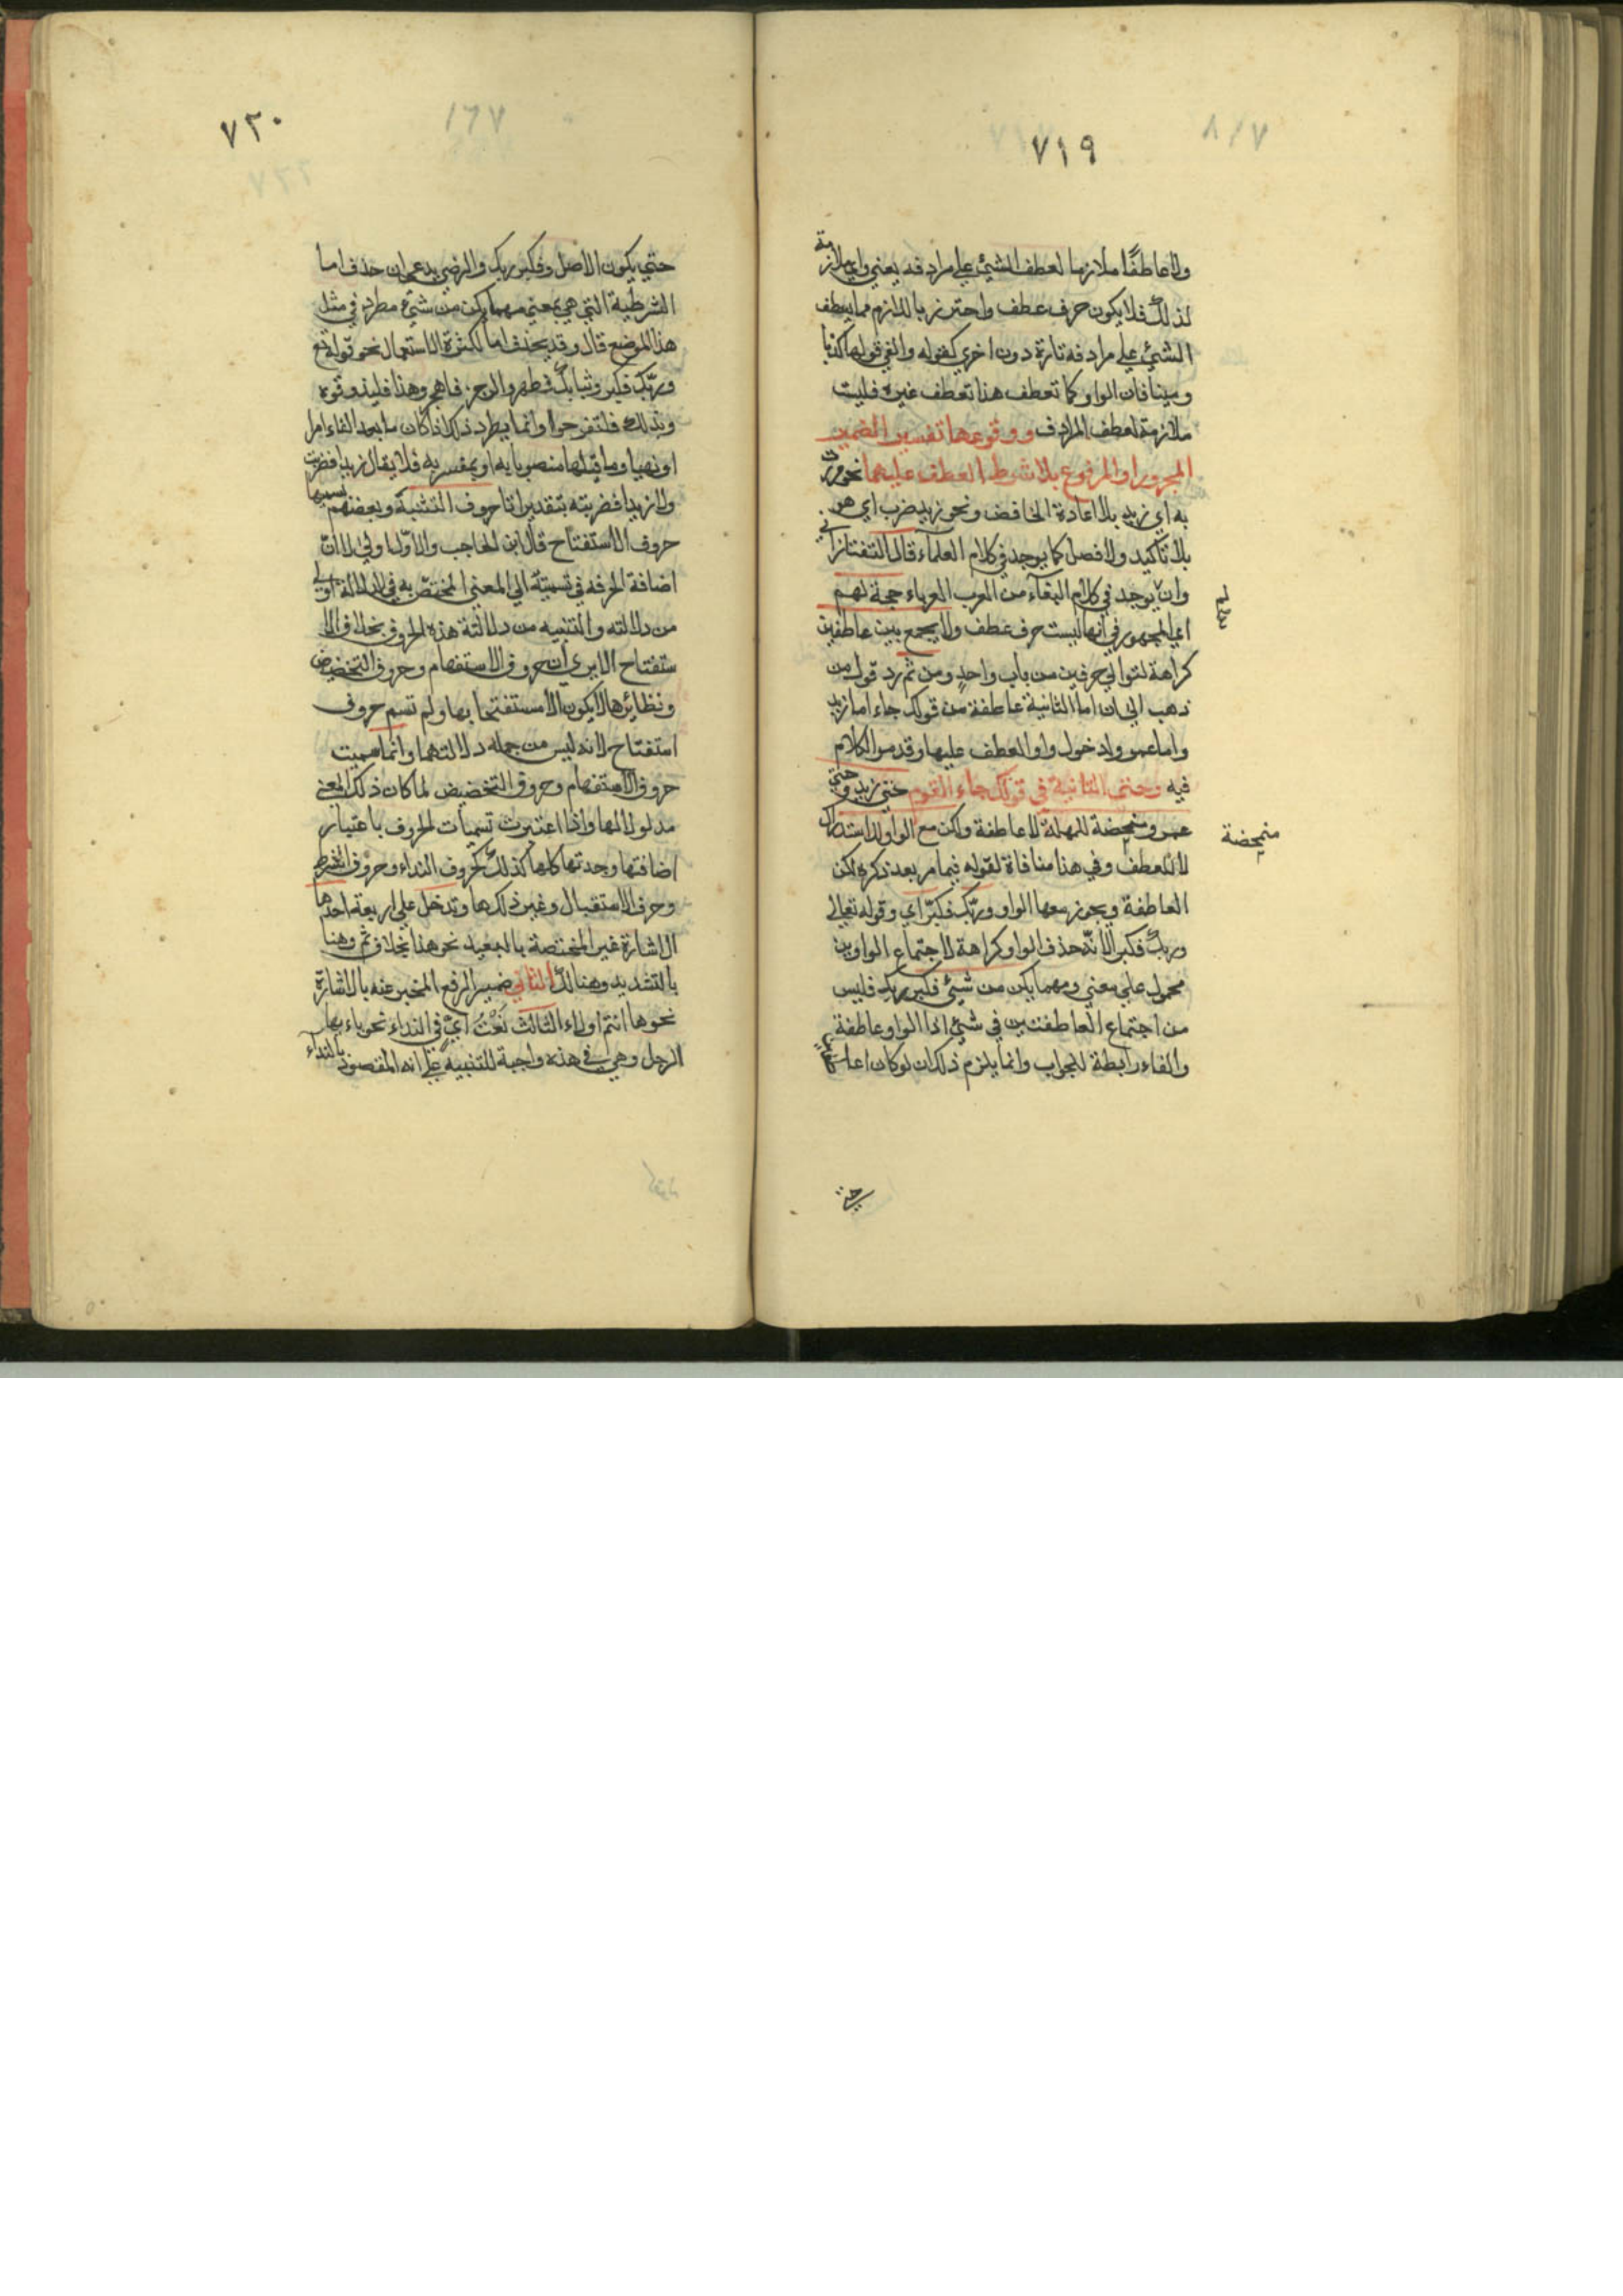 ٧١٩
ولا عاطفًا ملازما لعطف الشيئ علي مرادفه يعني واي ملازمة
لذلك فلا يكون حرف عطف واحترز بالملازم مما يعطف
الشيئ علي مرادفه تارة دون اخري كقوله والفي قولها كذبا
ومينا فان الواو كما تعطف هنا تعطف غيره فليست
ملازمة لعطف المرادف ووقوعها تفسير الضمير
المجرور او المرفوع بلا شرط العطف عليهما نحو مررت
به اي زيد بلا اعادة الخافض ونحو زيد ضرب اي هو
بلا تاكيد ولا فصل كما يوجد في كلام العلماء قال التفتازاني
وان يوجد في كلام من العرب العرباء حجة لهم
اي الجمهور في انها ليست حرف عطف ولا يجمع بين عاطفين
كراهة لتوالي حرفين من باب واحدٍ ومن ثم رد قول من
ذهب الي ان اما الثانية عاطفة من قولك جاء اما زيد
واما عمرو لدخول واو العطف عليها وقد مر الكلام
فيه وحتي الثانية في قولك جاء القوم حتي زيد وحتي
عمرو متمحضة للمهلة لا عاطفة ولكن مع الواو لاستدراك
لا للعطف وفي هذا منافاة لقوله فيما مر بعد ذكره لكن
العاطفة ويجوز معها الواو وربّك فكبّر اي وقوله تعالي
وربك فكبر الا انه حذف الواو كراهة لاجتماع الواوين
محمول علي معني ومهما يكن من شيئ فكبر ربك فليس
من اجتماع العاطفتين في شيئ اذا الواو عاطفة
والفاء رابطة للجواب وانما يلزم ذلك ان لو كان
متمحضة
حتي
٧٢٠
حتي يكون الاصل وفكبر ربك والرضي يدعي ان حذف اما
الشرطية التي هي بمعني مهما يكن من شيئ مطرد في مثل
هذا الموضع قال وقد يحذف اما لكثرة الاستعمال نحو قوله تع
وربّك فكبر وثيابك فطهر والرجز فاهجر وهذا فليذوقوه
وبذلك فلتفرحوا وانما يطرد ذلك اذا كان ما بعد الفاء امرا
او نهيا وما قبلها منصوبا به او بمفسر به فلا يقال زيدا فضربت
ولا زيدا فضربته بتقدير اما حروف التنبية وبعضهم يسميها
حروف الاستفتاح قال ابن الحاجب والاولي اولي لان
اضافة الحرف في تسميته الي المعني المختصّ به في الدلالة اولي
من دلالته والتنبيه من دلالة هذه الحروف بخلاف الا
ستفتاح الا يري ان حروف الاستفهام وحروف التحضيض
ونظائرها لا يكون الا مستفتحا بها ولم تسم حروف
استفتاح لانه ليس من جملة دلالتهما وانما سميت
حروف الاستفهام وحروف التحضيض لما كان ذلك المعني
مدلولا لها واذا اعتبرت تسميات الحروف باعتبار
اضافتها وجدتها كلها كذلك كحروف النداء وحروف الشرط
وحرف الاستقبال وغير ذلك ها وتدخل علي اربعة احدها
الاشارة غير المختصة بالبعيد نحو هذا بخلاف ثم وهنا
بالتشديد وهنالك الثاني ضمير الرفع المخبر عنه بالاشارة
نحو ها انتم اولاء الثالث نَعْتُ ايٍّ في النداء نحو يا ايها
الرجل وهي في هذه واجبة للتنبيه علي انه المقصود بالنداء